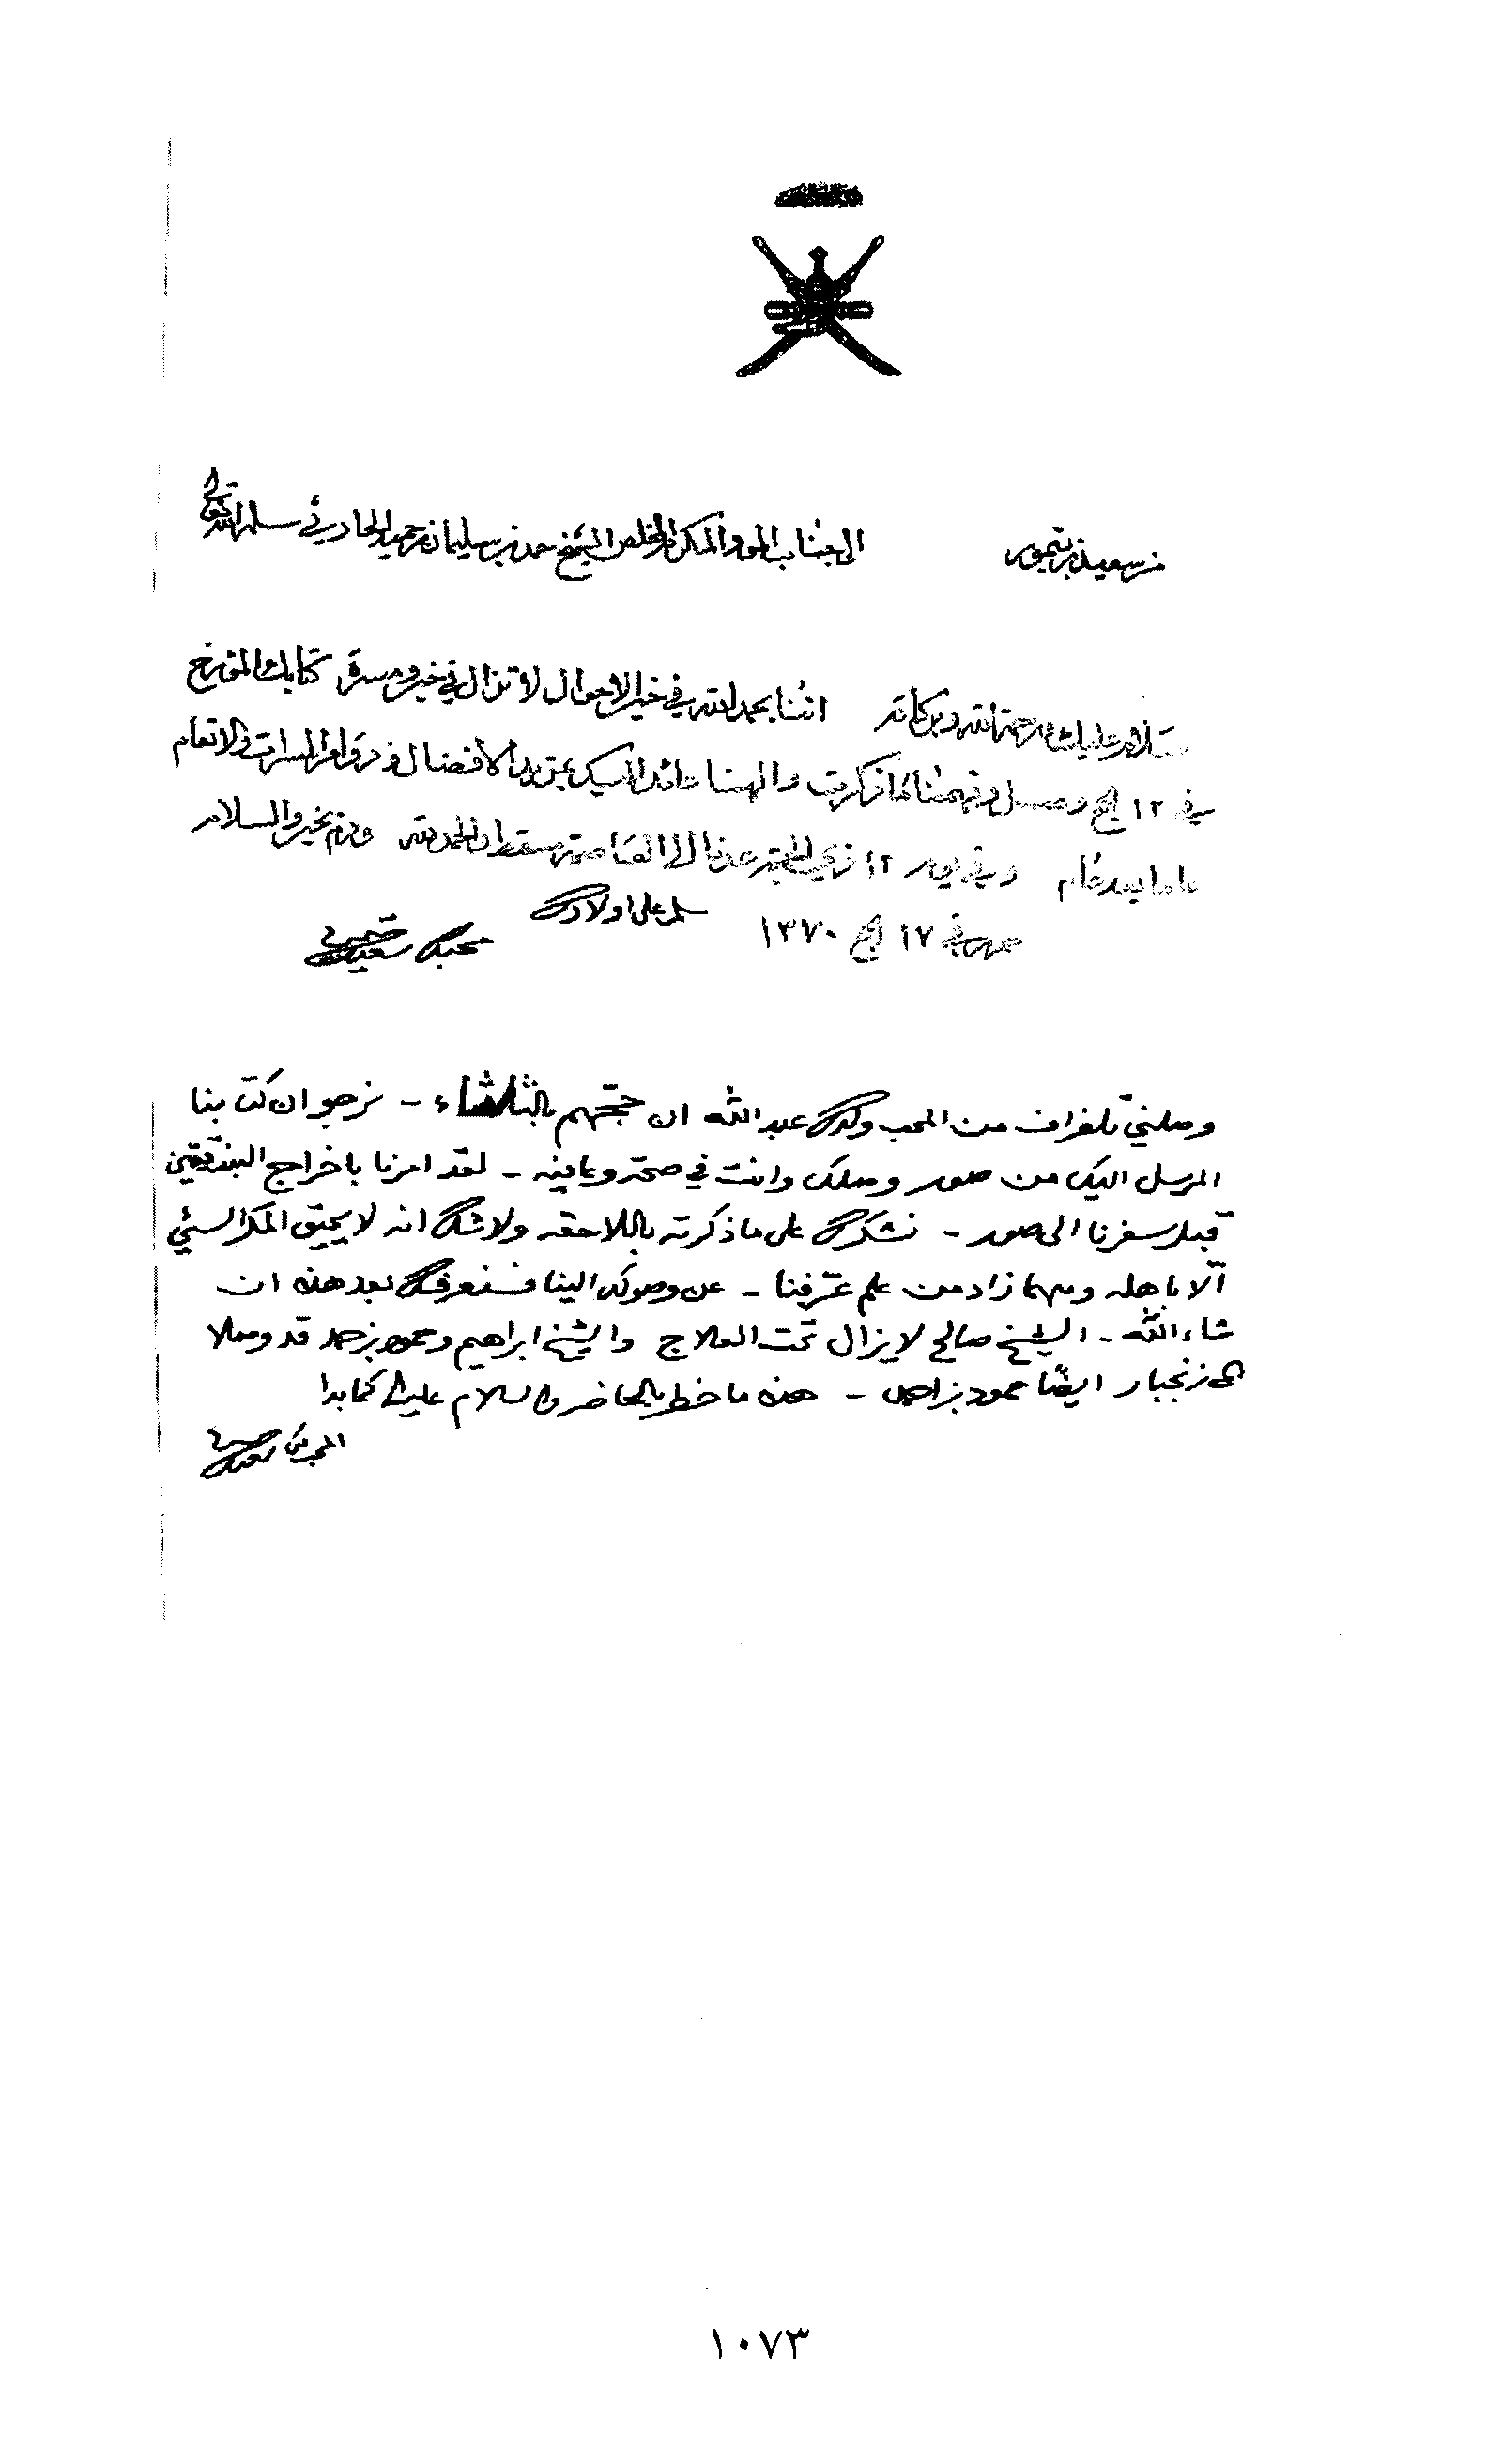 من سعيد بن تيمور
الى جناب المود المكرم المخلص الشيخ حمد بن سليمان بن حميد الحارثي سلمه الله تعالى
سلام عليك ورحمة الله وبركاته اننا بحمد الله في خير الاحوال لا تزال في خير ومسرة كتابك المؤرخ
في ١٢ الحج وصل وفهمنا ما ذكرت والهنا عائد اليك بمزيد الافضال ووافر المسرات والانعام
عاما بعد عام وفي يوم ١٢ ذي الحجة عدنا الى العاصمة مسقط والحمد لله ودم بخير والسلام
حرر في ١٧ الحج ١٣٧٠ سلم على اولادك
محبك سعيد بن تيمور
وصلني تلغراف من المحب ولدك عبدالله ان حجتهم بالثلاثاء - نرجو ان كتابنا
المرسل اليك من صور وصلك وانت في صحة وعافيه - لقد امرنا باخراج البندقتين
قبل سفرنا الى صور - نشكرك على ما ذكرته باللاحقه ولا شك انه لا يحيق المكر السيئ
الا باهله ومهما زاد من علم عرّفنا - عن وصولك الينا فسنعرفك بعد هذه ان
شاء الله - الشيخ صالح لا يزال تحت العلاج والشيخ ابراهيم وحمود بن حمد قد وصلا
الى زنجبار ايضًا حمود بن احمد - هذه ما خطر بالخاطر والسلام عليك كما بدا
المحب سعيد بن تيمور
١٠٧٣